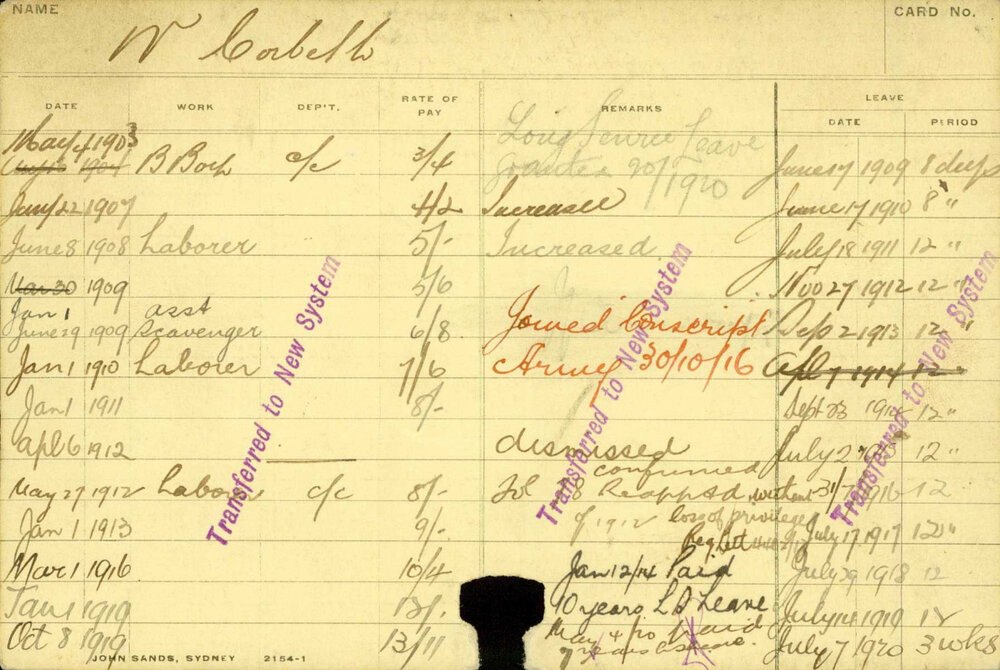 NAME
CARD No.
W Corbett
DATE WORK DEP'T. RATE OF PAY REMARKS LEAVE
DATE PERIOD
Long Service Leave
granted 1920
May 4 1903 B Boy c/c 3/4 June 17 1909 8 days
Jany 22 1907 4/2 Increased June 17 1910 8 "
June 8 1908 Laborer 5/- Increased July 18 1911 12 "
Mar 30 1909 5/6 Nov 27 1912 12 "
Jan 1 asst
June 29 1909 Scavenger 6/8 Joined Conscript Sep 2 1913 12 "
Jan 1 1910 Laborer 7/6 Army 30/10/16 Apl 7 1914 12 "
Jan 1 1911 8/- Sept 23 1914 12 "
Apl 6 1912 dismissed July 2 12 "
confirmed
May 27 1912 Laborer c/c 8/- Reappd without 31/7/1916 12
of 1912 loss of privileges
Jan 1 1913 9/- Reg Lett July 17 1917 12 "
Mar 1 1916 10/4 Jan 12/14 Paid July 29 1918 12
Jan 1 1919 10 years L S Leave July 14 1919 12
Oct 8 1919 13/11 May 4/10 paid July 7/1920 3 wks
7 years
Transferred to New System
Transferred to New System
Transferred to New System
JOHN SANDS, SYDNEY 2154-1